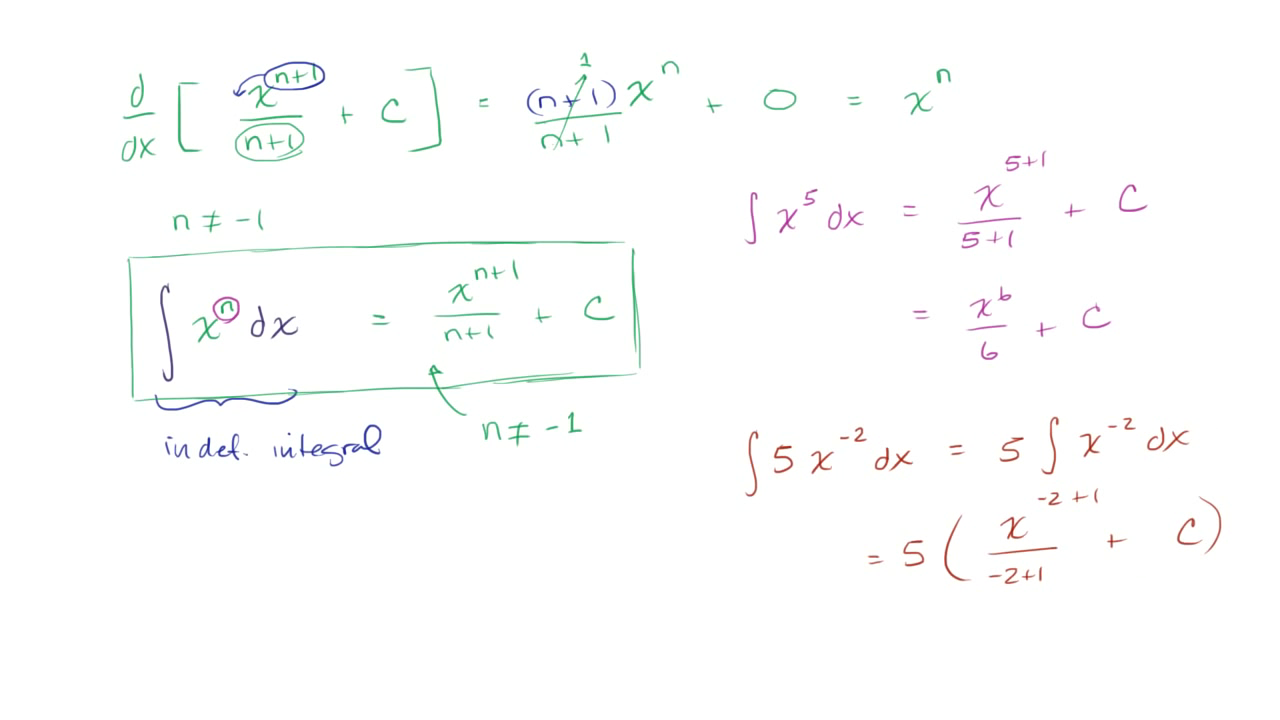 d/dx [ x^(n+1)/(n+1) + C ] = (n+1)x^n/(n+1) + 0 = x^n
1
n ≠ -1
∫ x^n dx = x^(n+1)/(n+1) + C
indef. integral
n ≠ -1
∫ x^5 dx = x^(5+1)/(5+1) + C
= x^6/6 + C
∫ 5 x^-2 dx = 5 ∫ x^-2 dx
= 5 ( x^(-2+1)/(-2+1) + C )